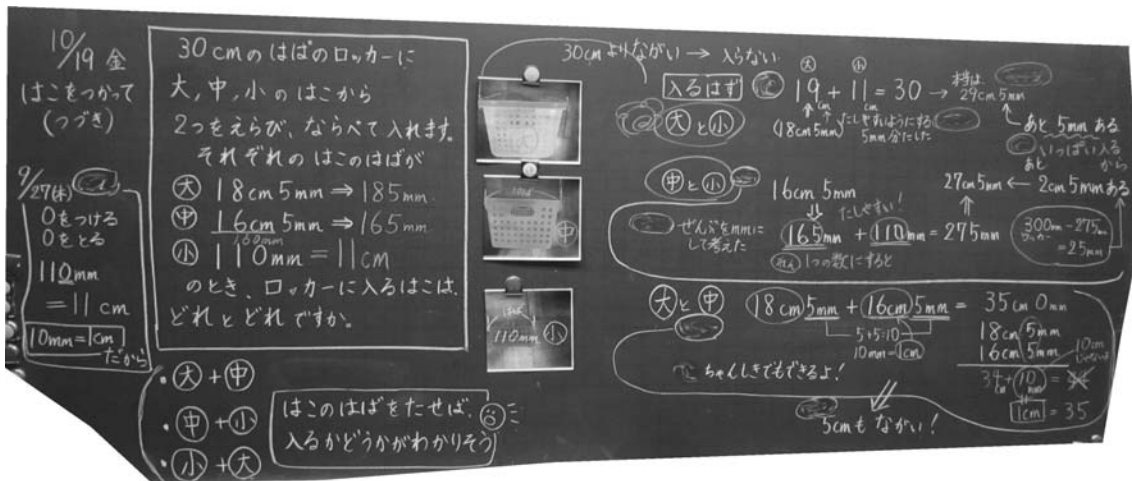 10/19 金
はこをつかって
(つづき)
9/27(木)
0をつける
0をとる
110mm
=11cm
10mm=1cm
だから
30cmのはばのロッカーに
大,中,小のはこから
2つをえらび、ならべて入れます。
それぞれのはこのはばが
大 18cm5mm⇒185mm
中 16cm5mm⇒165mm
160mm
小 110mm=11cm
のとき、ロッカーに入るはこは、
どれとどれですか。
・大+中
・中+小
・小+大
はこのはばをたせば、
入るかどうかがわかりそう
中
110mm 小
30cmよりながい→入らない
入るはず
大と小
大 小
19cm+11cm=30→
本当は
29cm5mm
(18cm5mm)
たしやすいようにする
5mm分たした
あと5mmある
いっぱい入る
あと
から
中と小
16cm5mm
⇓
たしやすい!
165mm+110mm=275mm
ぜんぶをmmに
して考えた
1つの数にすると
27cm5mm←2cm5mmある
300mm-275mm
ロッカー
=25mm
大と中
18cm5mm+16cm5mm=35cm0mm
5+5=10
10mm=1cm
ちゃんしきでもできるよ!
5cmもながい!
18cm5mm
16cm5mm
34cm+10mm=
10cm
1cm=35